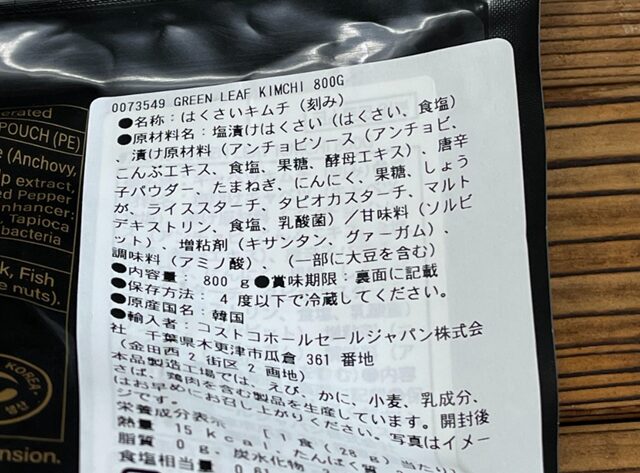 0073549 GREEN LEAF KIMCHI 800G
●名称：はくさいキムチ（刻み）
●原材料名：塩漬けはくさい（はくさい、食塩）
、漬け原材料（アンチョビソース（アンチョビ、
こんぶエキス、食塩、果糖、酵母エキス）、唐辛
子パウダー、たまねぎ、にんにく、果糖、しょう
が、ライススターチ、タピオカスターチ、マルト
デキストリン、食塩、乳酸菌）／甘味料（ソルビ
ット）、増粘剤（キサンタン、グァーガム）、
調味料（アミノ酸）、（一部に大豆を含む）
●内容量：800 g●賞味期限：裏面に記載
●保存方法：4 度以下で冷蔵してください。
●原産国名：韓国
●輸入者：コストコホールセールジャパン株式会
社 千葉県木更津市瓜倉 361 番地
（金田西 2 街区 2 画地）
本品製造工場では、えび、かに、小麦、乳成分、
さば、鶏肉を含む製品を生産しています。開封後
はお早めにお召し上がりください。写真はイメー
ジです。
栄養成分表示 [1食(28g)当たり
熱量 15 kcal たんぱく質
脂質 0 g、炭水化物
食塩相当量
POUCH (PE)
(Anchovy,
extract,
Pepper
enhancer:
Tapioca
bacteria
Fish
nuts).
KOREA